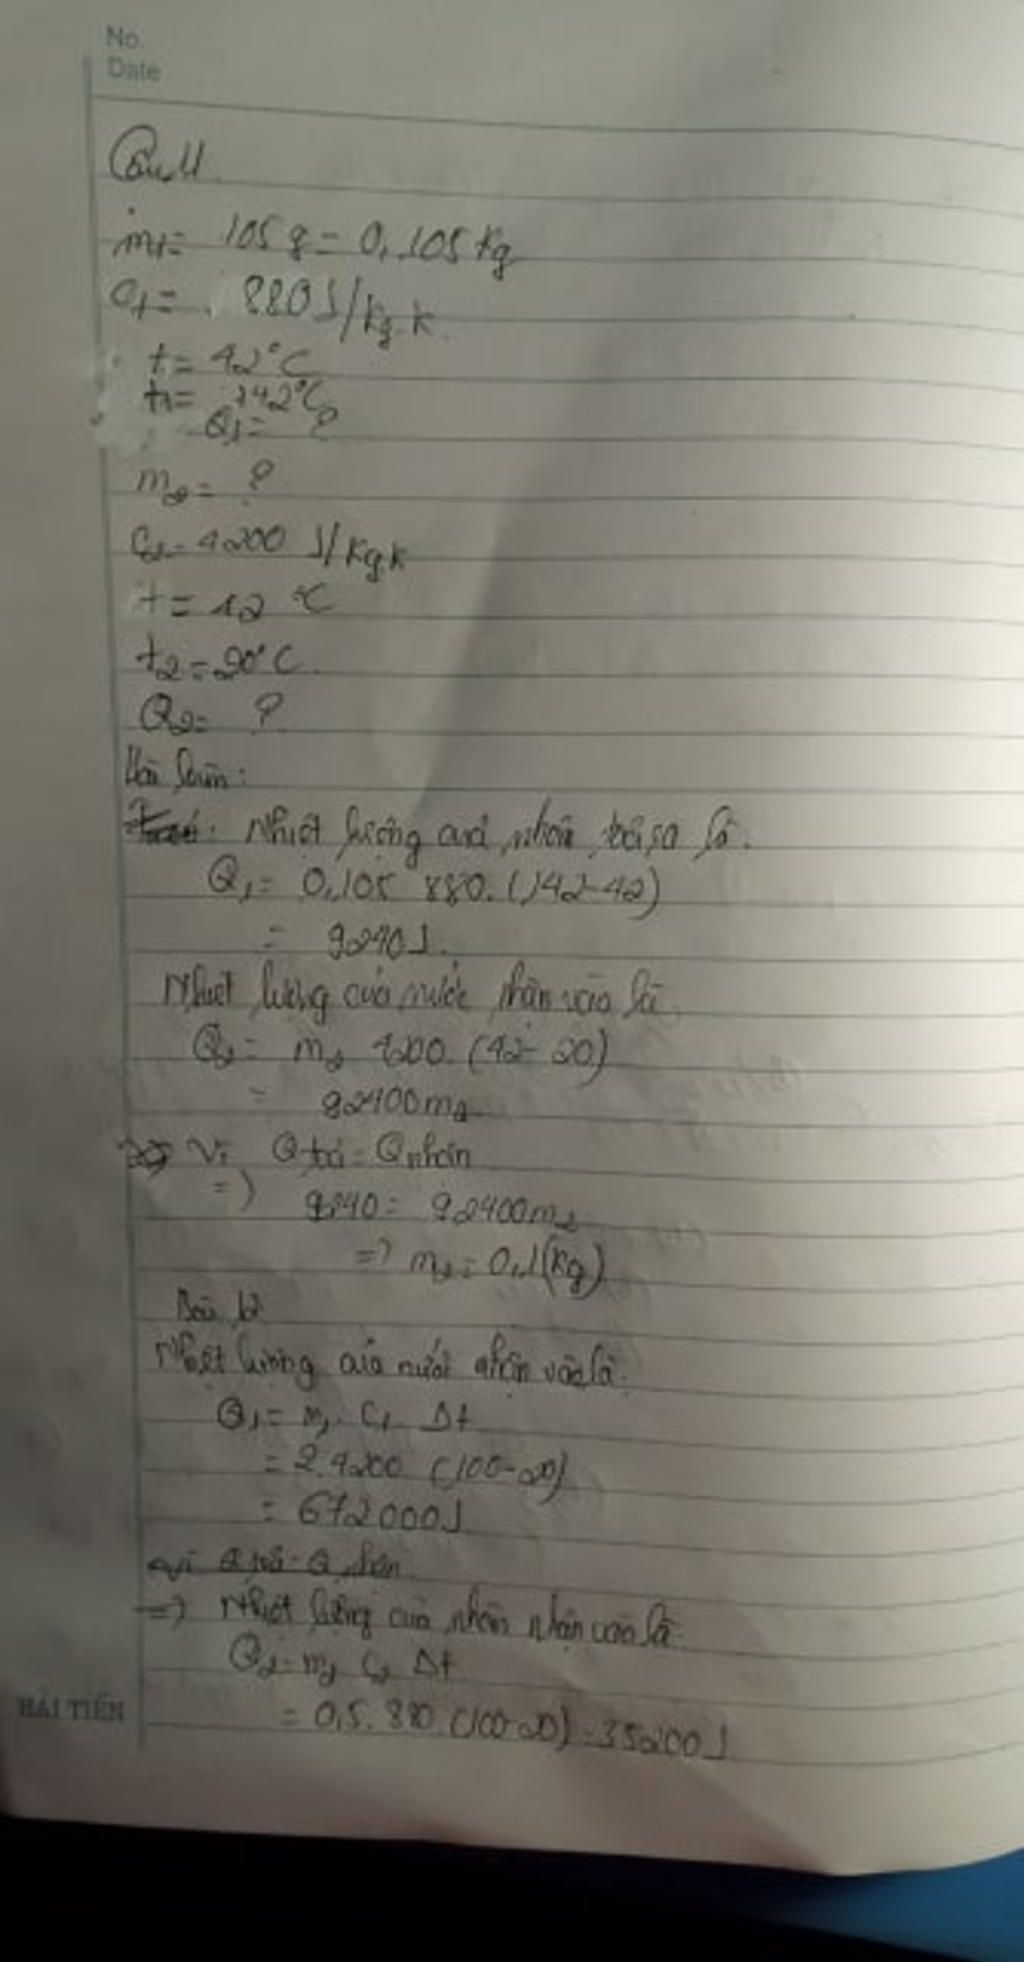 No.
Date
Câu 11
m1= 105g = 0,105 kg
C1= 880J/kg.k
t= 42°C
t1= 142°C
Q1= ?
m2= ?
C2= 4200 J/kgk
t= 42 °C
t2=20°C
Q2= ?
Bài làm:
Nhiệt lượng của nhôm tỏa ra là.
Q1= 0,105 880.(142-42)
= 9240J.
Nhiệt lượng của nước nhận vào là
Q2= m2 4200. (42- 20)
= 92400m2
Vì Q tỏa = Q nhận
=) 9240= 92400m2
=) m2= 0,1(kg)
Bài 12
Nhiệt lượng của nước nhận vào là.
Q1= m1. C1. Δt
= 2.4200 (100-20)
= 672000J
Vì Q tỏa = Q nhận
=) Nhiệt lượng của nhôm nhận vào là
Q2= m2 C2 Δt
= 0,5. 880.(100-20) =35200J
HẢI TIẾN